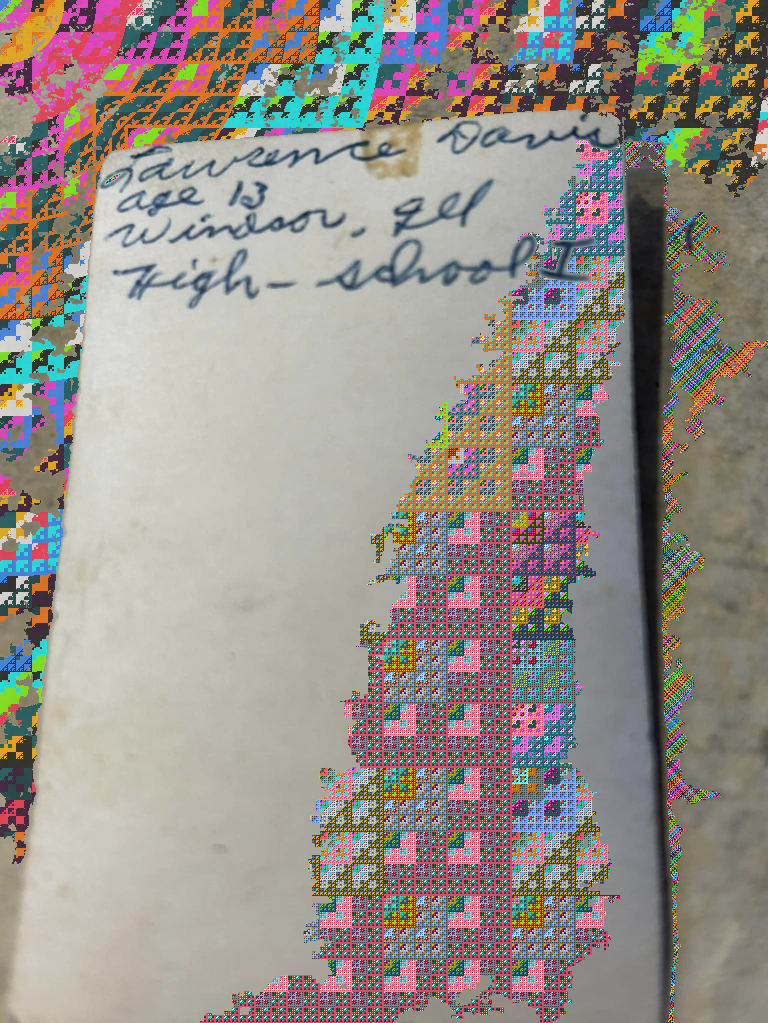 Lawrence Davis
age 13
Windsor, Ill
High-school I